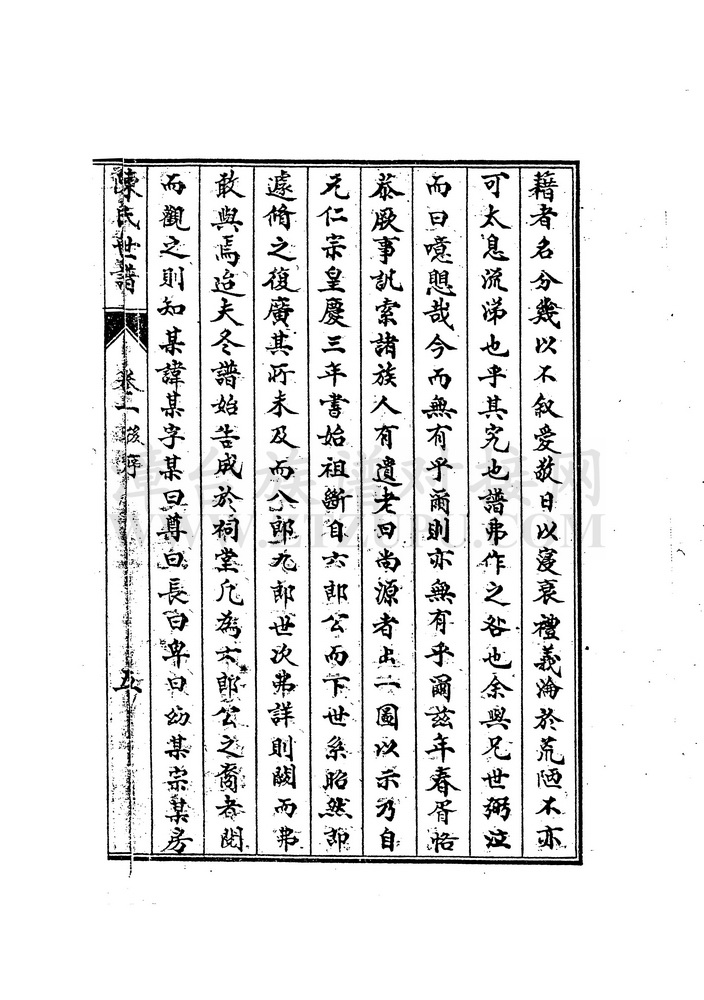 藉者名分幾以不叙愛敬日以寖衰禮義淪於荒陋不亦
可太息流涕也乎其究也譜弗作之咎也余與兄世弼泣
而曰噫思哉今而無有乎爾則亦無有乎爾茲年春胥恪
恭厥事訊索諸族人有遺老曰尚源者出一圖以示乃自
元仁宗皇慶三年書始祖斷自六郎公而下世系昭然即
遽脩之復廣其所未及而八郎九郎世次弗詳則闕而弗
敢與焉迨夫冬譜始告成於祠堂凡為六郎公之裔者閱
而觀之則知某諱某字某曰尊曰長曰卑曰幼某宗某房
陳氏世譜
卷一
後序
五
章台族譜对接网
WWW.ZTZUPU.COM